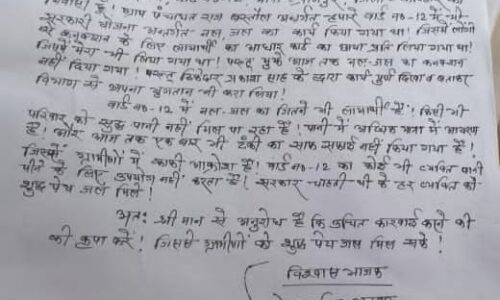 ग्राम पंचायत राज बरतौली अन्तर्गत हमारे वार्ड नं०-12 में भी
सरकारी योजना अन्तर्गत नल-जल का कार्य किया गया था! जिसमें लोगों
से कनेक्शन के लिए लाभार्थी का आधार कार्ड का छाया प्रति लिया गया था!
जिसमें मेरा भी लिया गया था! परन्तु मुझे आज तक नल-जल का कनक्शन
नहीं दिया गया! परन्तु ठिकेदार साह के द्वारा कार्य पुर्ण दिखा व बताकर
विभाग से अपना भुगतान भी करा लिया!
वार्ड नं०-12 में नल-जल का जितने भी लाभार्थी हैं! किसी भी
परिवार को शुद्ध पानी नहीं मिल पा रहा है! पानी में अधिक मात्रा में आयरण
है! और आज तक एक बार भी टंकी का साफ सफाई नहीं किया गया है!
जिससे ग्रामीणों में काफी आक्रोश है! वार्ड नं०-12 का कोई भी व्यक्ति पानी
पीने के लिए उपयोग नहीं करता है! सरकार चाहती थी के हर व्यक्ति को
शुद्ध पेय जल मिले!
अतः श्री मान से अनुरोध है कि उचित कारवाई करने की
की कृपा करें! जिससे ग्रामीणों को शुद्ध पेय जल मिल सके!
विश्वास भाजक